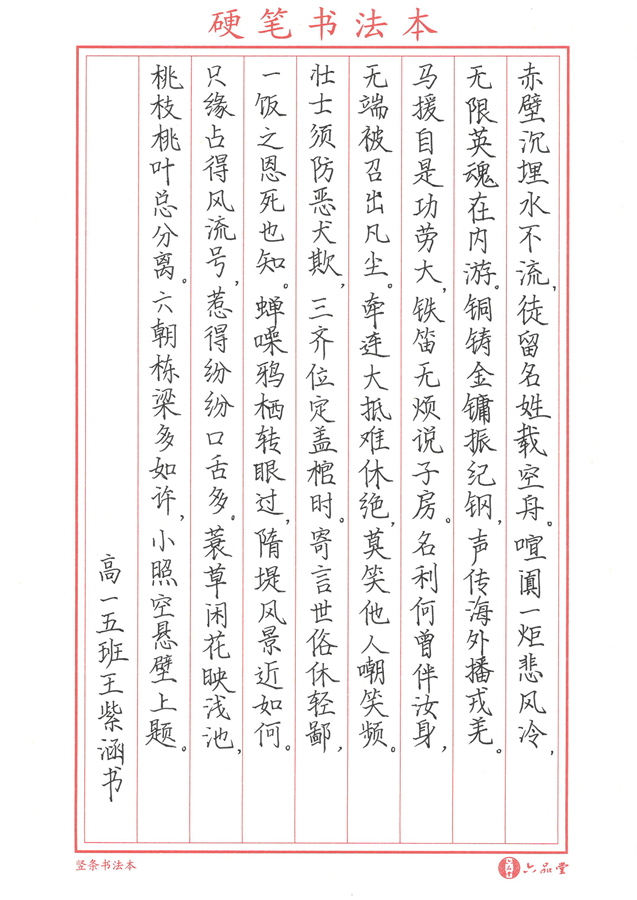 硬笔书法本
赤壁沉埋水不流，徒留名姓载空舟。喧阗一炬悲风冷，
无限英魂在内游。铜铸金镛振纪钢，声传海外播戎羌。
马援自是功劳大，铁笛无烦说子房。名利何曾伴汝身，
无端被召出凡尘。牵连大抵难休绝，莫笑他人嘲笑频。
壮士须防恶犬欺，三齐位定盖棺时。寄言世俗休轻鄙，
一饭之恩死也知。蝉噪鸦栖转眼过，隋堤风景近如何。
只缘占得风流号，惹得纷纷口舌多。蓑草闲花映浅池，
桃枝桃叶总分离。六朝栋梁多如许，小照空悬壁上题。
高一五班王紫涵书
竖条书法本
六品堂